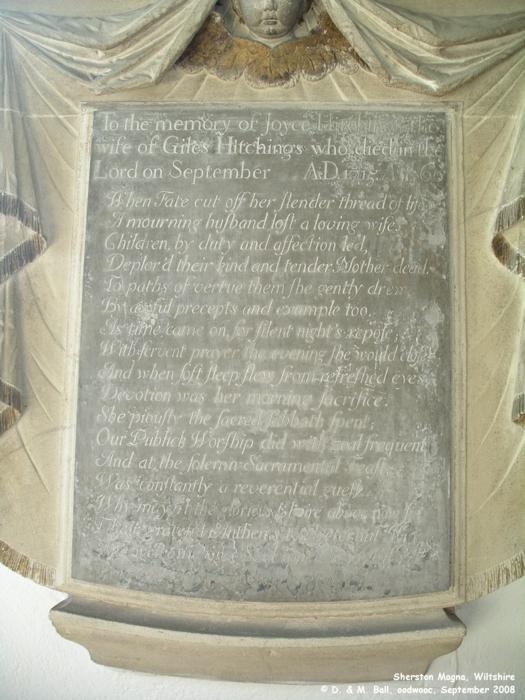 To the memory of Joyce Hitchings the
wife of Giles Hitchings who died in the
Lord on September A:D. 1715.
When Fate cut off her ſlender thread of life
A mourning huſband loſt a loving wife.
Children, by duty and affection led,
Deplor'd their kind and tender Mother dead.
To paths of vertue them ſhe gently drew
By awful precepts and example too.
As time came on, for ſilent night's repoſe;
With fervent prayer the evening ſhe would cloſe
And when ſoft ſleep flew from refreſhed eyes
Devotion was her morning ſacrifice.
She piouſly the ſacred ſabbath ſpent;
Our Publick Worſhip did with zeal frequent
And at the ſolemn Sacramental Feaſt
Was conſtantly a reverential gueſt.
Why may
Sherston Magna, Wiltshire
© D. & M. Ball, oodwooc, September 2008